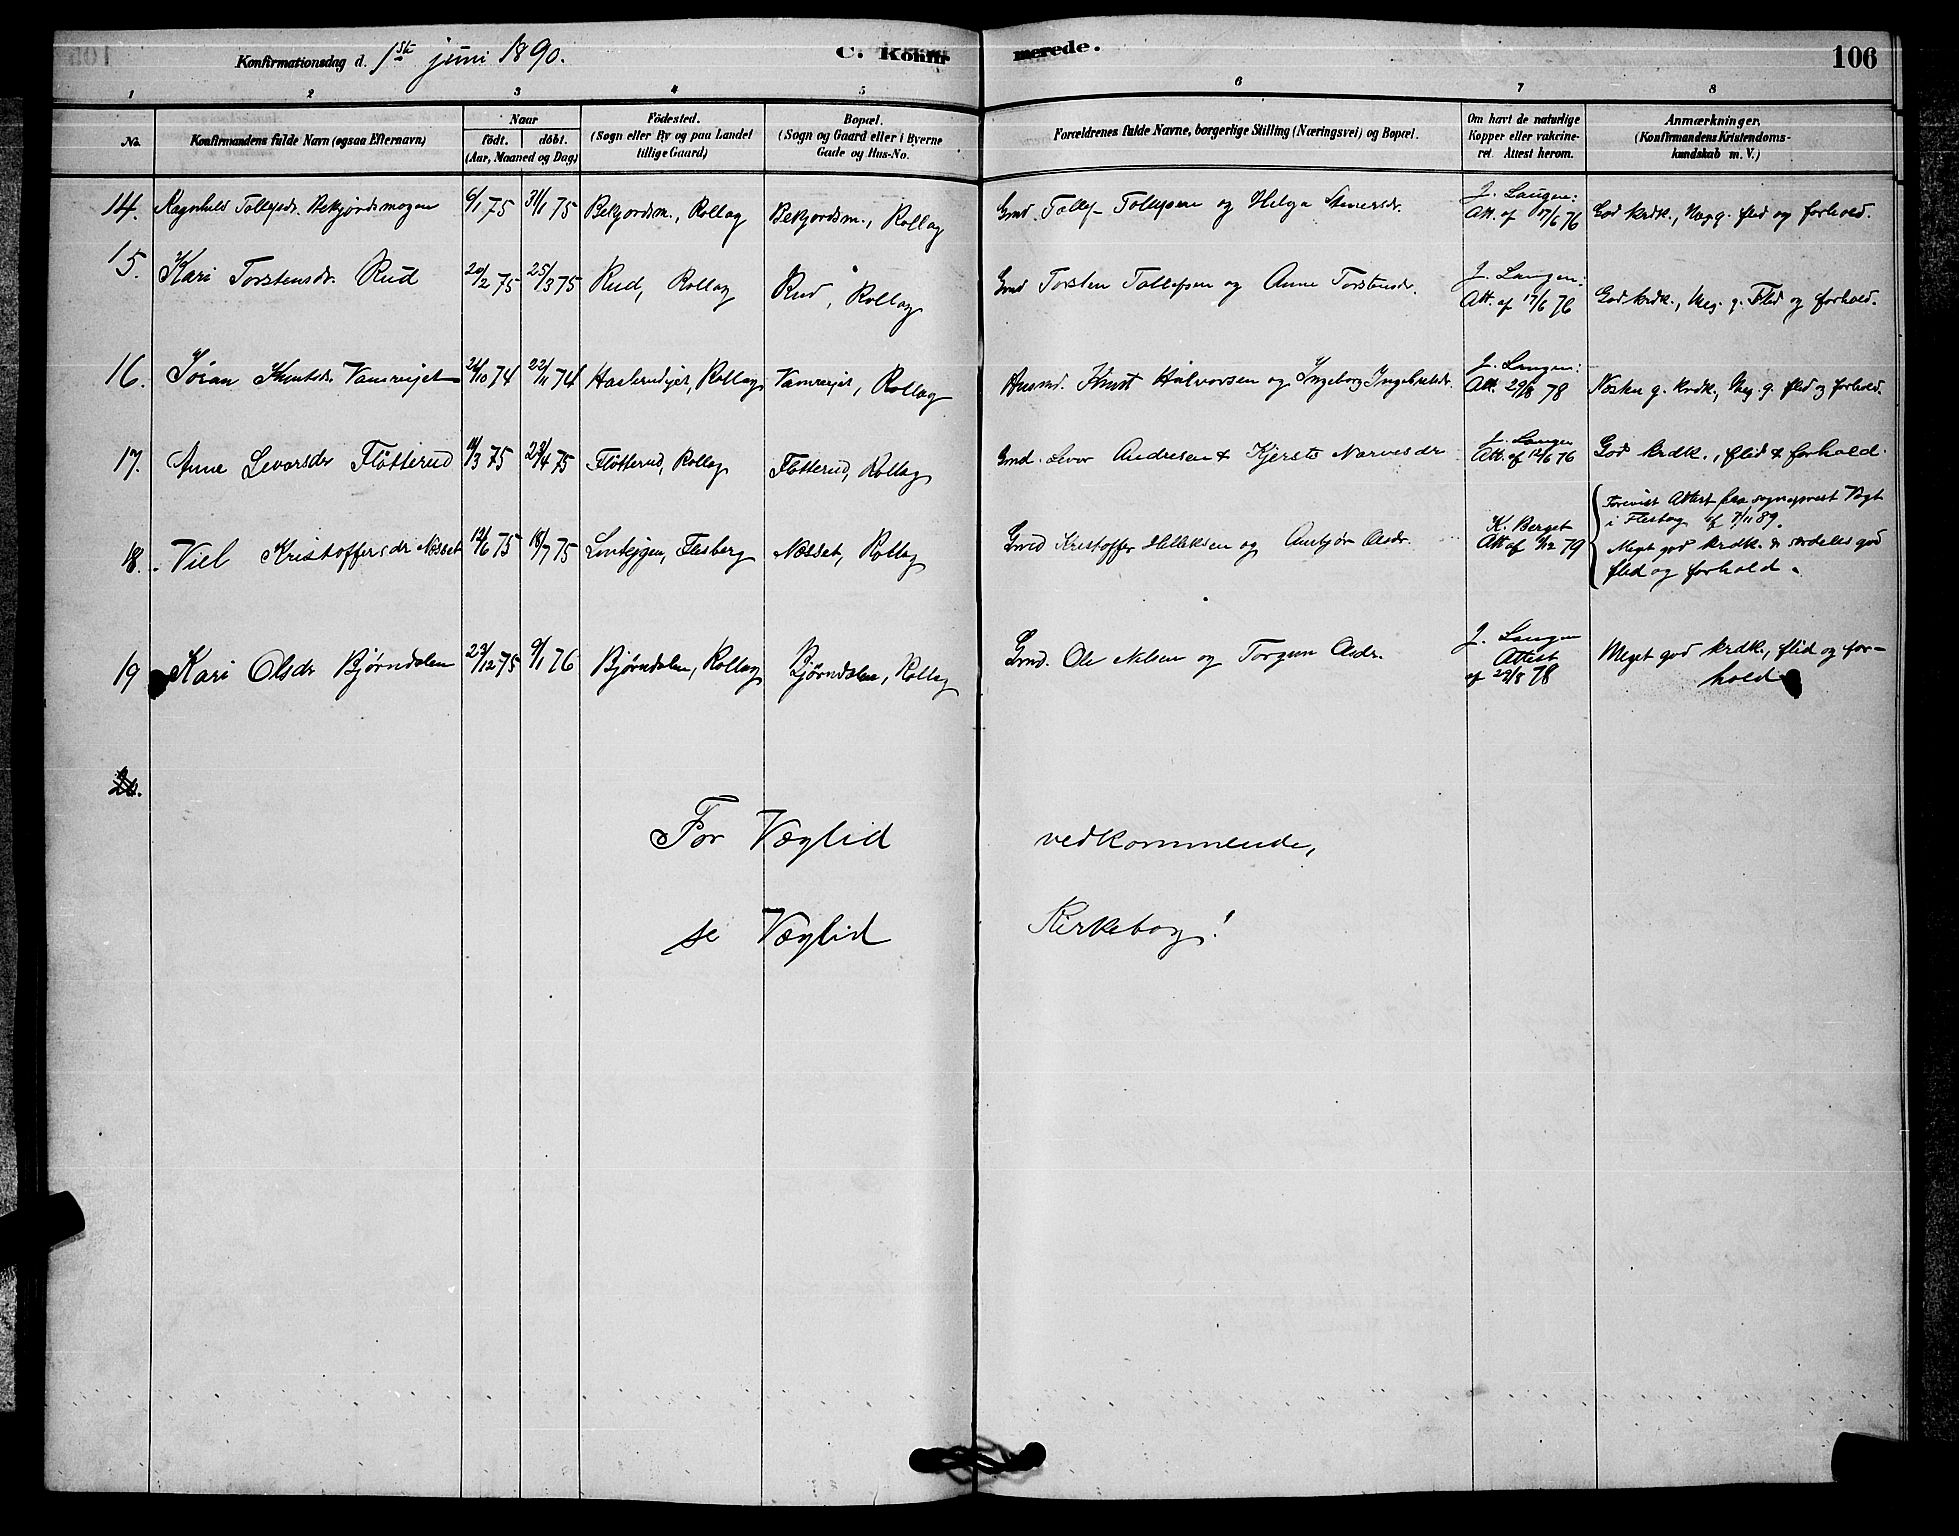 Konfirmationsdag d. 1ste juni 1890.
C. Konfir
merede.
106
1 2 3 4 5 6 7 8
No.
Konfirmandens fulde Navn (ogsaa Efternavn)
Naar
födt. döbt.
(Aar, Maaned og Dag)
Födested.
(Sogn eller By og paa Landet
tillige Gaard)
Bopæl.
(Sogn og Gaard eller i Byerne
Gade og Hus-No.
Forældrenes fulde Navne, borgerlige Stilling (Næringsvei) og Bopæl.
Om havt de naturlige
Kopper eller vakcine-
ret. Attest herom.
Anmærkninger,
(Konfirmandens Kristendoms-
kundskab m. V.)
14. Ragnhild Tollefsdr. Bekjordsmogen 6/1 75 31/1 75 Bekjordsm., Rollag Bekjordsm., Rollag Grmd. Tollef Tollefsen og Helga Steinersdr. J. Langen:
Att. af 17/6 76 God krdk., Meg. g. flid og forhold.
15. Kari Torstensdr. Rud 20/2 75 25/3 75 Rud, Rollag Rud, Rollag Grmd Torsten Tollefsen og Anne Torstensdr. J. Langen:
Att. af 17/6 76 God krdk., Meg. g. Flid og forhold.
16. Jøran Knutsdr. 74 22/11 74 Rollag Rollag Husmd. Knut Halvorsen og Ingeborg Ingebretsdr. J. Langen:
Att. 29/8 78 Næsten g. krdk., Meg. g. flid og forhold.
17. Anne Levorsdr Fløtterud 75 75 Fløtterud, Rollag Fløtterud, Rollag Grmd. Levor Andresen & Kjersti Narvesdr J. Langen
Att. af 12/6 76 God krdk., flid & forhold.
18. Viel Kristoffersdr Næsset 12/6 75 18/7 75 Flesberg Næsset, Rollag Grmd Kristoffer Helleksen og Olsdr. K. Berget
Att af 79 Forevist Attest fra sogneprest Vogt
i Flesberg af 7/11 89.
Meget god krdk. & særdeles god
flid og forhold.
19 Kari Olsdr Bjørndalen 23/12 75 9/1 76 Bjørndalen, Rollag Bjørndalen, Rollag Grmd. Ole Nilsen og Torgun Olsdr. J. Langen
Attest
af 29/8 78 Meget god krdk., flid og for-
hold
20.
For Veglid vedkommende,
se Veglid Kirkebog!